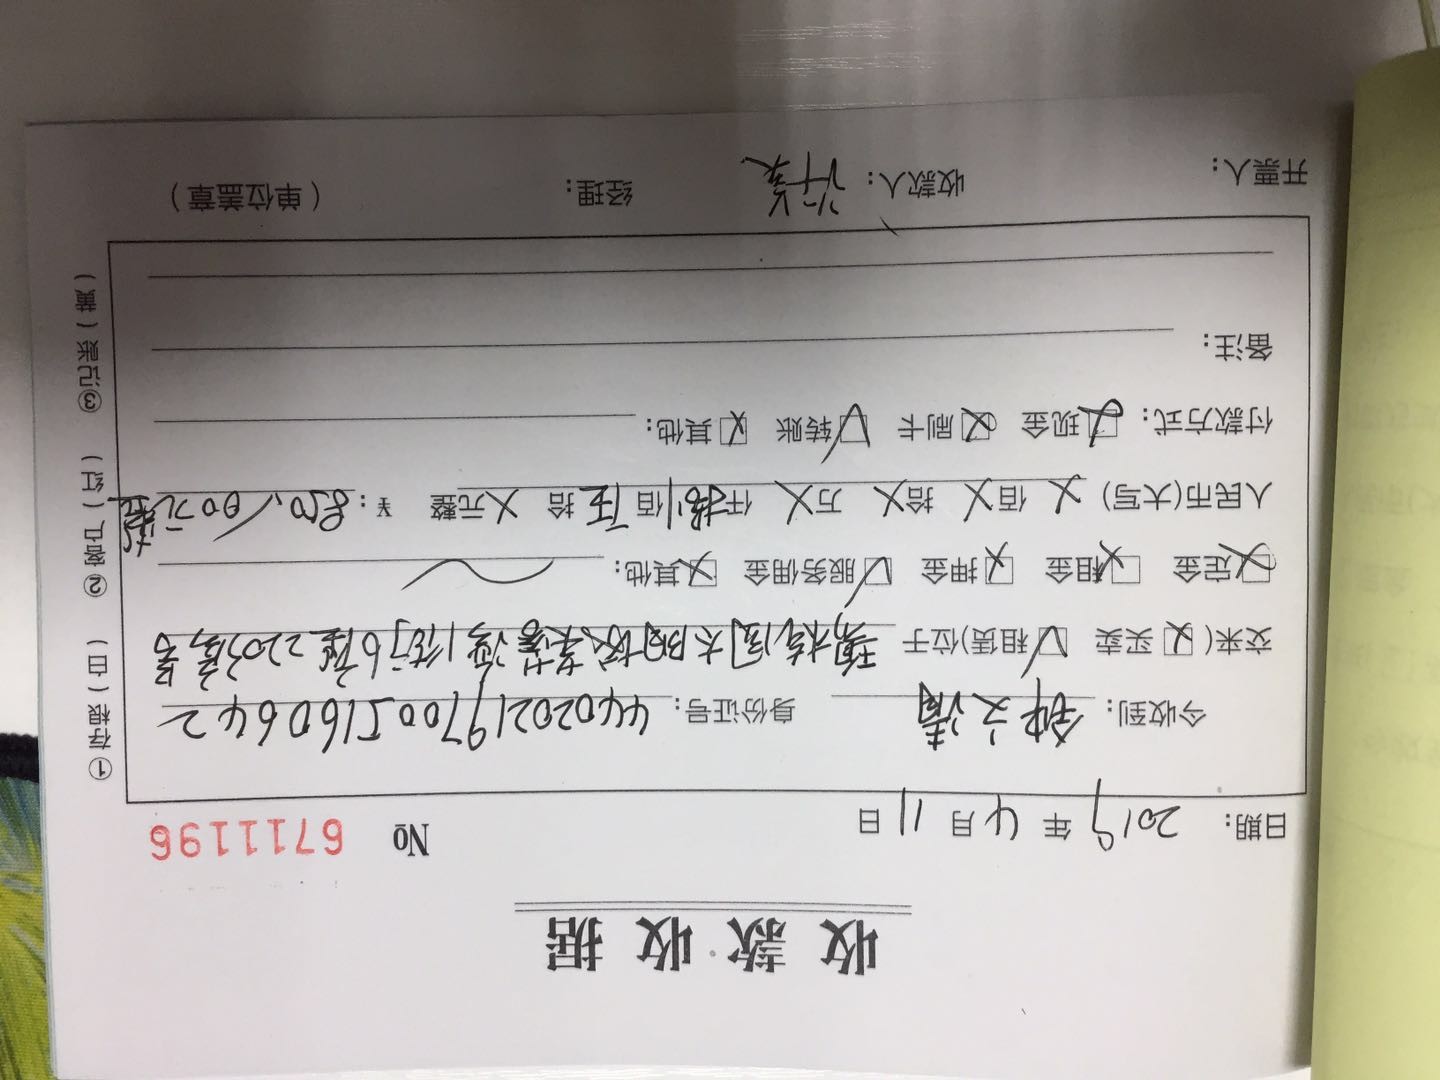 收款收据
日期：2019年4月11日 № 6711196
今收到：钟文清 身份证号：440202197005160642
交来（☒买卖 ☑租赁）位于 碧桂园太阳城 湾1街6座2203房号
☒定金 ☒租金 ☒押金 ☑服务佣金 ☒其他：
人民币(大写) X 佰 X 拾 X 万 X 仟 捌 佰 伍 拾 X 元整 ￥：850.00元整
付款方式： 现金 ☒刷卡 ☑转账 ☒其他：
备注：
开票人： 收款人：许 经理： （单位盖章）
①存根（白） ②客户（红） ③记账（黄）